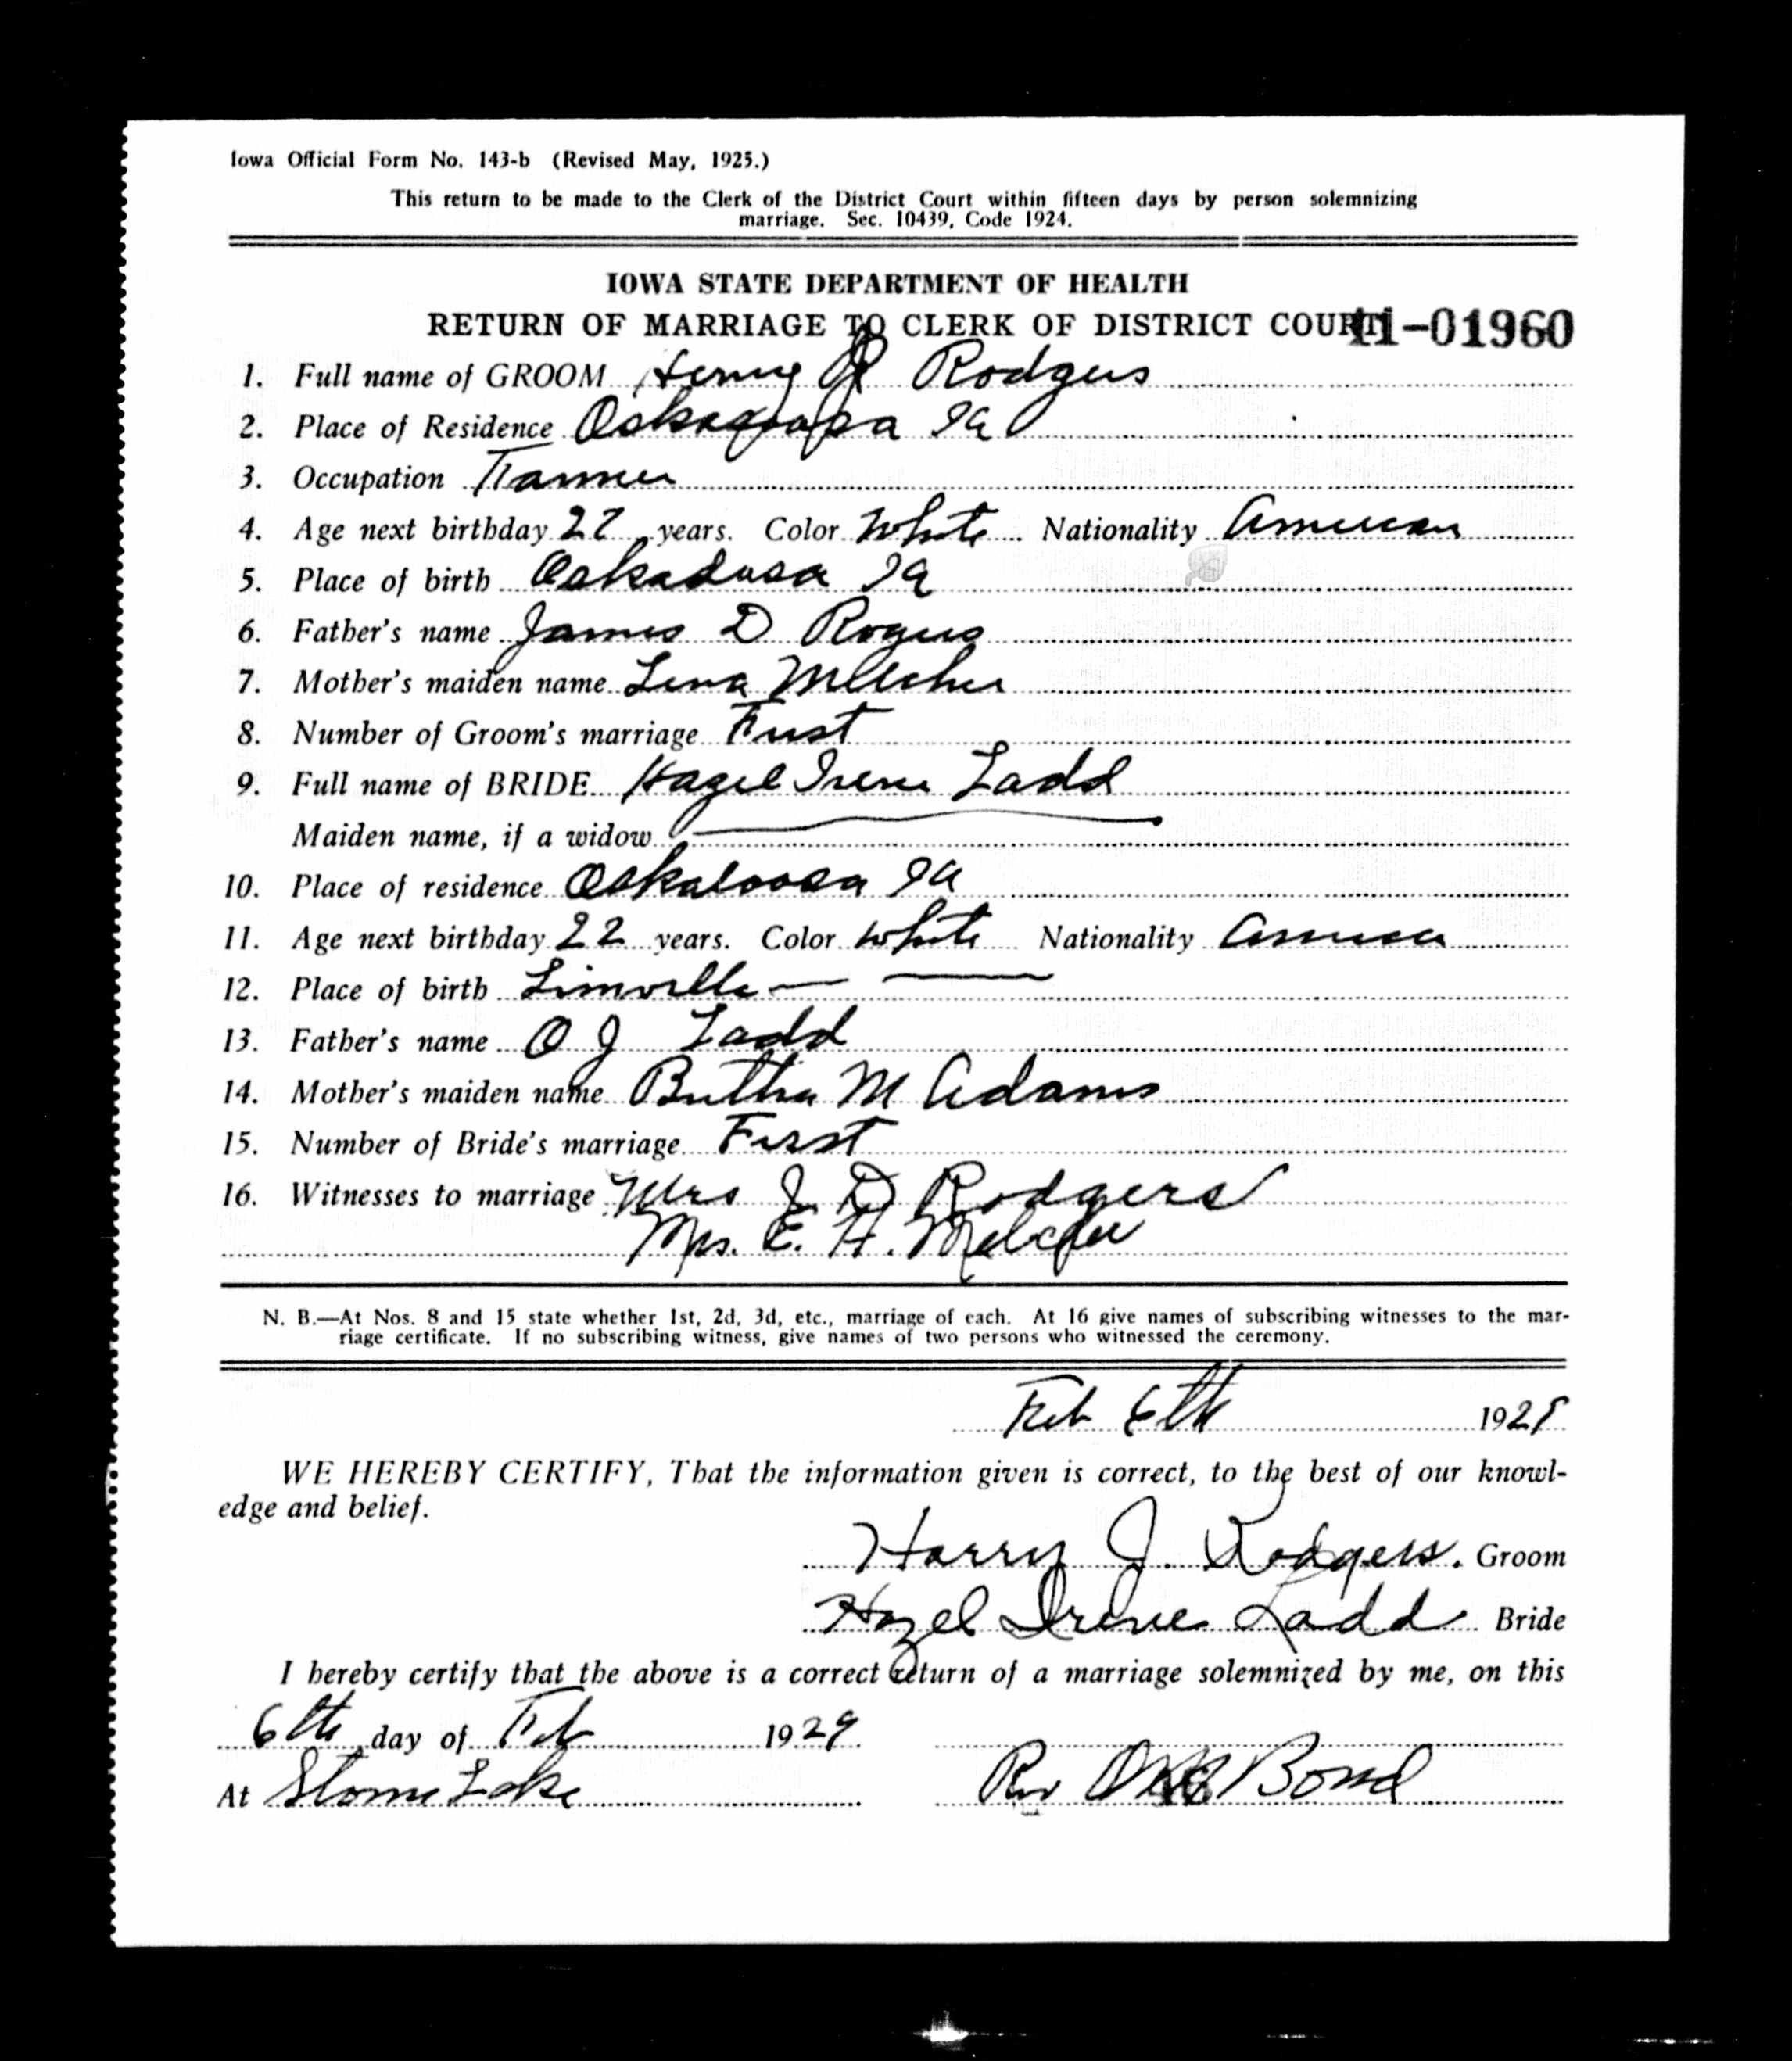 Iowa Official Form No. 143-b (Revised May, 1925.)
This return to be made to the Clerk of the District Court within fifteen days by person solemnizing
marriage. Sec. 10439, Code 1924.
IOWA STATE DEPARTMENT OF HEALTH
RETURN OF MARRIAGE TO CLERK OF DISTRICT COURT 11-01960
1. Full name of GROOM Rodgers
2. Place of Residence Ia
3. Occupation Farmer
4. Age next birthday 27 years. Color White Nationality American
5. Place of birth Ia
6. Father's name James D Rogers
7. Mother's maiden name Lena Melcher
8. Number of Groom's marriage First
9. Full name of BRIDE Hazel Irene Ladd
Maiden name, if a widow
10. Place of residence Oskaloosa Ia
11. Age next birthday 22 years. Color White Nationality
12. Place of birth
13. Father's name O J Ladd
14. Mother's maiden name Bertha M Adams
15. Number of Bride's marriage First
16. Witnesses to marriage Mrs J. D Rodgers
Mrs. E. H. Melcher
N. B.—At Nos. 8 and 15 state whether 1st, 2d, 3d, etc., marriage of each. At 16 give names of subscribing witnesses to the mar-
riage certificate. If no subscribing witness, give names of two persons who witnessed the ceremony.
Feb 6th 1929
WE HEREBY CERTIFY, That the information given is correct, to the best of our knowl-
edge and belief.
Harry J. Rodgers. Groom
Hazel Irene Ladd Bride
I hereby certify that the above is a correct return of a marriage solemnized by me, on this
6th day of Feb 1929
At Lake Rev Bond